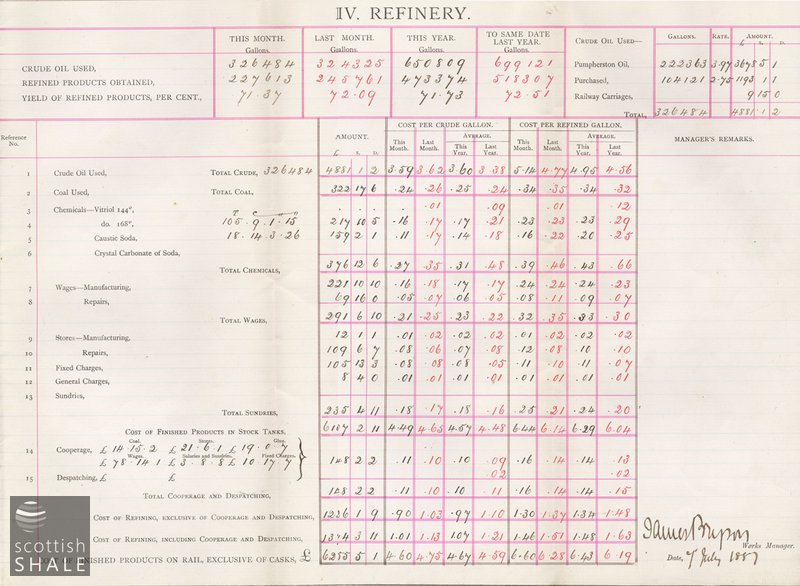 IV. REFINERY.
THIS MONTH. LAST MONTH. THIS YEAR. TO SAME DATE LAST YEAR. CRUDE OIL USED— GALLONS. RATE. AMOUNT.
Gallons. Gallons. Gallons. Gallons. £ S. D.
CRUDE OIL USED, 326484 324325 650809 699121 Pumpherston Oil, 222363 3.97 3678 5 1
REFINED PRODUCTS OBTAINED, 227613 245761 473374 518307 Purchased, 104121 2.75 1193 1 1
YIELD OF REFINED PRODUCTS, PER CENT., 71.37 72.09 71.73 72.51 Railway Carriages, 9 15 0
TOTAL, 326484 4881 1 2
Reference No. AMOUNT. COST PER CRUDE GALLON. COST PER REFINED GALLON. MANAGER'S REMARKS.
£ S. D. This Month. Last Month. AVERAGE. This Year. Last Year. This Month. Last Month. AVERAGE. This Year. Last Year.
1 Crude Oil Used, TOTAL CRUDE, 326484 4881 1 2 3.59 3.62 3.60 3.38 5.14 4.77 4.95 4.56
2 Coal Used, TOTAL COAL, 322 17 6 .24 .26 .25 .24 .34 .35 .34 .32
3 Chemicals—Vitriol 144°, .01 .09 .01 .12
T C " "
4 do. 168°, 105. 9. 1. 15 217 10 5 .16 .17 .17 .21 .23 .23 .23 .29
5 Caustic Soda, 18. 14. 3. 26 159 2 1 .11 .17 .14 .18 .16 .22 .20 .25
6 Crystal Carbonate of Soda,
TOTAL CHEMICALS, 376 12 6 .27 .35 .31 .48 .39 .46 .43 .66
7 Wages—Manufacturing, 221 10 10 .16 .18 .17 .17 .24 .24 .24 .23
8 Repairs, 69 16 0 .05 .07 .06 .05 .08 .11 .09 .07
TOTAL WAGES, 291 6 10 .21 .25 .23 .22 .32 .35 .33 .30
9 Stores—Manufacturing, 12 1 1 .01 .02 .02 .02 .01 .02 .02 .02
10 Repairs, 109 6 7 .08 .06 .07 .08 .12 .08 .10 .10
11 Fixed Charges, 105 13 3 .08 .08 .08 .05 .11 .10 .11 .07
12 General Charges, 8 4 0 .01 .01 .01 .01 .01 .01 .01 .01
13 Sundries,
TOTAL SUNDRIES, 235 4 11 .18 .17 .18 .16 .25 .21 .24 .20
COST OF FINISHED PRODUCTS IN STOCK TANKS, 6107 2 11 4.49 4.65 4.57 4.48 6.44 6.14 6.29 6.04
Coal. Stores. Glue.
14 Cooperage, £ 14. 15. 2 £ 21. 6. 1 £ 19. 0. 7
Wages. Salaries and Sundries. Fixed Charges.
£ 78. 14. 1 £ 3. 8. 8 £ 10 17. 7 148 2 2 .11 .10 .10 .09 .16 .14 .14 .13
15 Despatching, £ £ .02 .02
TOTAL COOPERAGE AND DESPATCHING, 148 2 2 .11 .10 .10 .11 .16 .14 .14 .15
COST OF REFINING, EXCLUSIVE OF COOPERAGE AND DESPATCHING, 1226 1 9 .90 1.03 .97 1.10 1.30 1.37 1.34 1.48
COST OF REFINING, INCLUDING COOPERAGE AND DESPATCHING, 1374 3 11 1.01 1.13 1.07 1.21 1.46 1.51 1.48 1.63
OF FINISHED PRODUCTS ON RAIL, EXCLUSIVE OF CASKS, £ 6255 5 1 4.60 4.75 4.67 4.59 6.60 6.28 6.43 6.19
James Bryson
Works Manager.
Date, 7 July 1887
scottish
SHALE